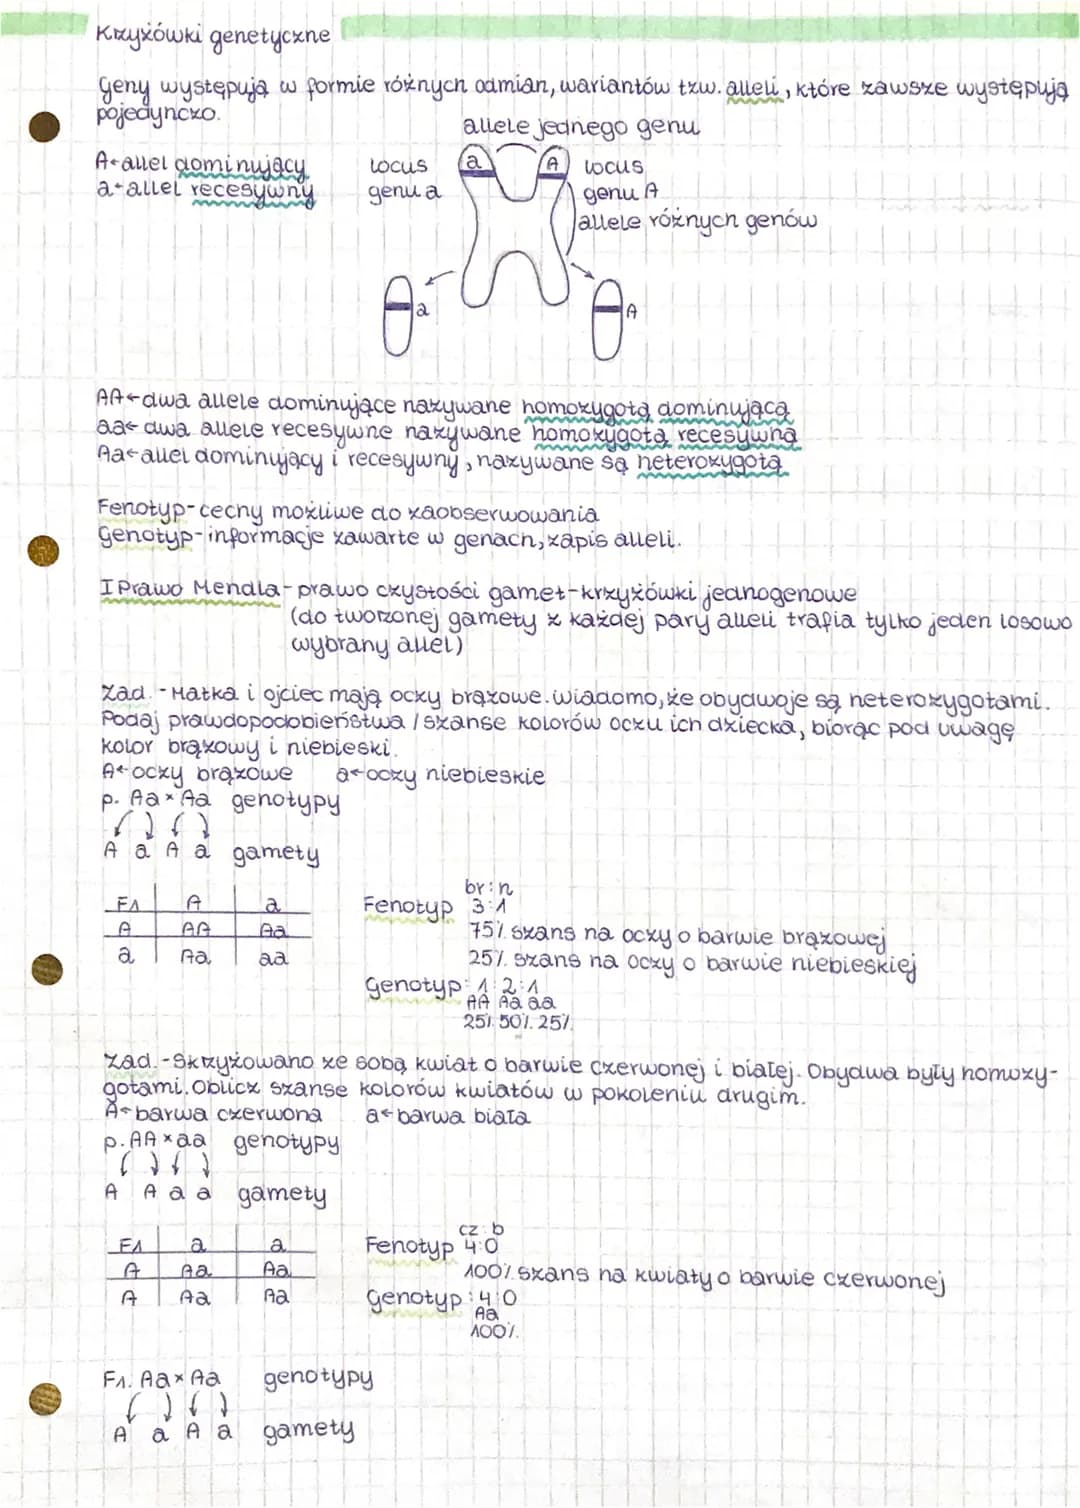 Krzyżówki genetyczne
Geny występują w formie różnych odmian, wariantów tzw. alleli, które zawsze występują
pojedynczo.
allele jednego genu
A←allel dominujący
a←allel recesywny
locus
genu a
a
A
locus
genu A
allele różnych genów
a
A
AA←dwa allele dominujące nazywane homozygotą dominującą
aa←dwa allele recesywne nazywane homozygotą recesywną
Aa←allel dominujący i recesywny, nazywane są heterozygotą
Fenotyp-cechy możliwe do zaobserwowania
Genotyp-informacje zawarte w genach, zapis alleli.
I Prawo Mendla-prawo czystości gamet-krzyżówki jednogenowe
(do tworzonej gamety z każdej pary alleli trafia tylko jeden losowo
wybrany allel)
Zad.-Matka i ojciec mają oczy brązowe. wiadomo, że obydwoje są heterozygotami.
Podaj prawdopodobieństwa / szanse kolorów oczu ich dziecka, biorąc pod uwagę
kolor brązowy i niebieski.
A←oczy brązowe a←oczy niebieskie
p. Aa×Aa genotypy
A a A a gamety
F1 A a
A AA Aa
a Aa aa
br:n
Fenotyp 3:1
75% szans na oczy o barwie brązowej
25% szans na oczy o barwie niebieskiej
Genotyp: 1:2:1
AA Aa aa
25% 50% 25%
Zad.-Skrzyżowano ze sobą kwiat o barwie czerwonej i białej. Obydwa były homozy-
gotami. Oblicz szanse kolorów kwiatów w pokoleniu drugim.
A←barwa czerwona a←barwa biała
p. AA×aa genotypy
A A a a gamety
F1 a a
A Aa Aa
A Aa Aa
cz:b
Fenotyp 4:0
100% szans na kwiaty o barwie czerwonej
Genotyp: 4:0
Aa
100%
F1. Aa×Aa genotypy
A a A a gamety